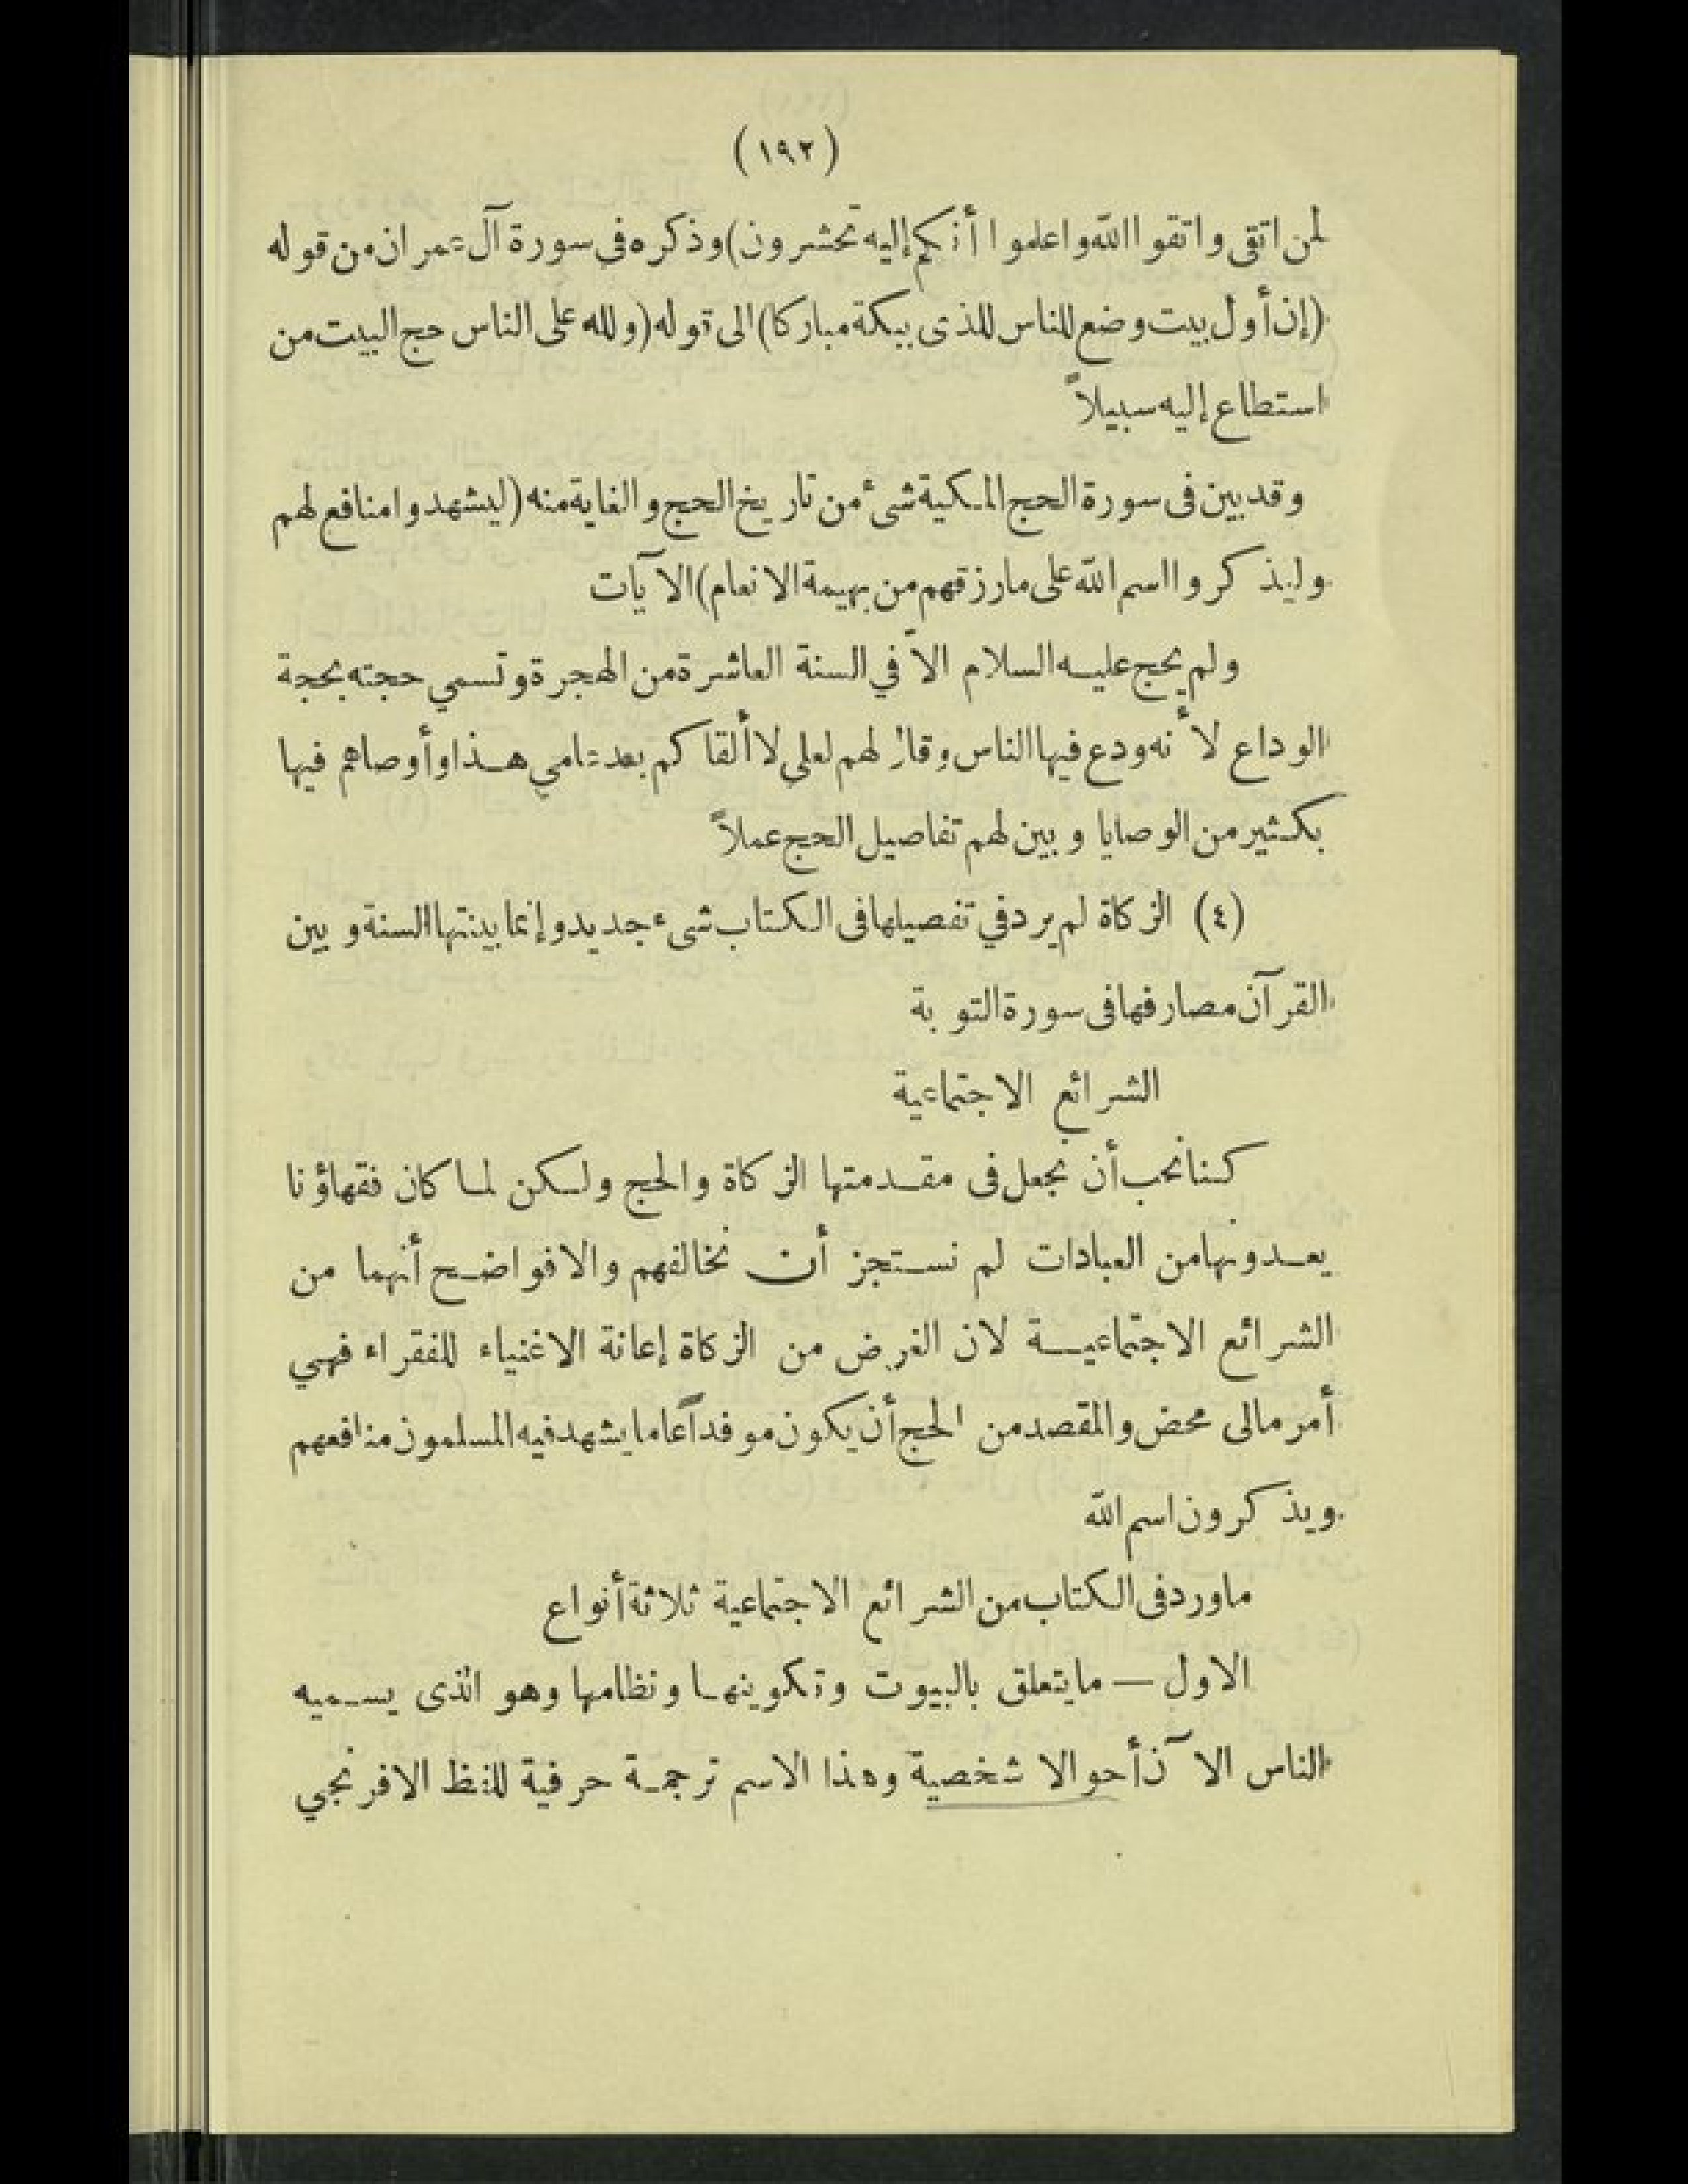 (١٩٢)
لمن اتقى واتقوا الله واعلموا أنكم إليه تحشرون) وذكره فى سورة آل عمران من قوله
(إن أول بيت وضع للناس للذى ببكة مباركا) الى قوله (ولله على الناس حج البيت من
استطاع إليه سبيلاً
وقد بين فى سورة الحج المكية شئ من تاريخ الحج والغاية منه (ليشهدوا منافع لهم
وليذكروا اسم الله على مارزقهم من بهيمة الانعام) الآيات
ولم يحج عليه السلام الاّ في السنة العاشرة من الهجرة وتسمي حجته بحجة
الوداع لأنه ودع فيها الناس وقال لهم لعلى لا ألقاكم بعد عامي هذا وأوصاهم فيها
بكثير من الوصايا وبين لهم تفاصيل الحج عملاً
(٤) الزكاة لم يرد في تفصيلها فى الكتاب شىء جديد وإنما بينتها السنة وبين
القرآن مصارفها فى سورة التوبة
الشرائع الاجتماعية
كنا نحب أن نجعل فى مقدمتها الزكاة والحج ولكن لما كان فقهاؤنا
يعدونها من العبادات لم نستجز أن نخالفهم والا فواضح أنهما من
الشرائع الاجتماعية لان الغرض من الزكاة إعانة الاغنياء للفقراء فهي
أمر مالى محض والمقصد من الحج أن يكون موفداً عاما يشهد فيه المسلمون منافعهم
ويذكرون اسم الله
ماورد فى الكتاب من الشرائع الاجتماعية ثلاثة أنواع
الاول — مايتعلق بالبيوت وتكوينها ونظامها وهو الذى يسميه
الناس الآن أحوالا شخصية وهذا الاسم ترجمة حرفية للفظ الافرنجي